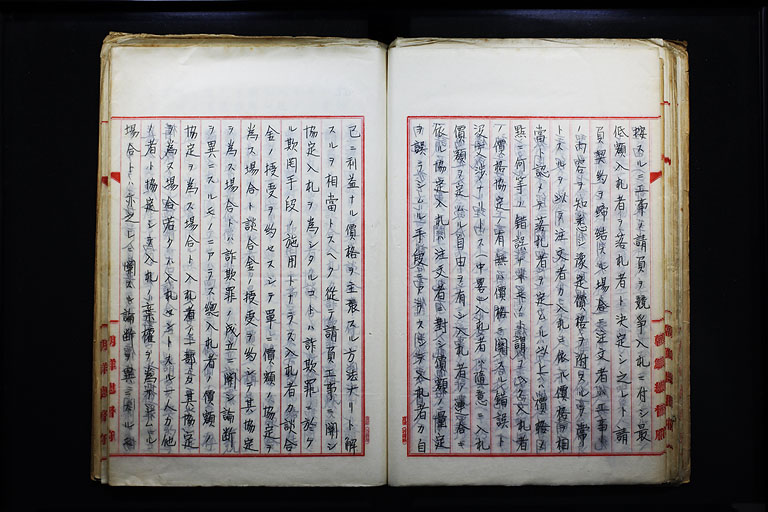 按スルニ工事ノ請負ヲ競争入札ニ付シ最
低額入札者ヲ落札者ト決定シ之レト請
負契約ヲ締結スル場合ニ注文者ハ工事
ノ内容ヲ知悉シ豫定價格ヲ附スルヲ常
トスルヲ以テ注文者カ入札ニ依ル價格ヲ相
當ト認メテ落札者ヲ定ムル以上ハ價格ノ
點ニ何等ノ錯誤ヲ来スノト謂フ
ノ價格協定ノ有無ハ價格ニ関スル錯誤ト
没交渉ナリトス(中畧)入札者ハ随意ニ入札
價額ヲ定ムル自由ヲ有シ入札者ノ連合ニ
依ル協定入札ハ注文者ニ對シ價額ノ量定
ヲ誤ラシムル手段ニアラス入札者カ自
己ニ利益ナル價格ヲ主張スル方法ナリト解
スルヲ相當トスヘク従テ請負工事ニ関シ
協定入札ヲ為シタルコトハ詐欺罪ニ於ケ
ル欺罔手段ノ施用トナラス入札者カ談合
金ノ授受ヲ約セスシテ單ニ價額ノ協定ヲ
為ス場合ト談合金ノ授受ヲ約シ其協定
ヲ為ス場合トハ詐欺罪ノ成立ニ関シ論断
ヲ異ニスルモノニアラス總入札者ノ價額ノ
協定ヲ為ス場合ト入札者ノ一部カ其協定
ヲ為ス場合若クハ入札セントスル一人カ他
ノ者ト協定シテ入札ノ棄權ヲ為サシムル
場合トハ亦之レニ関スル論断ヲ異ニスル